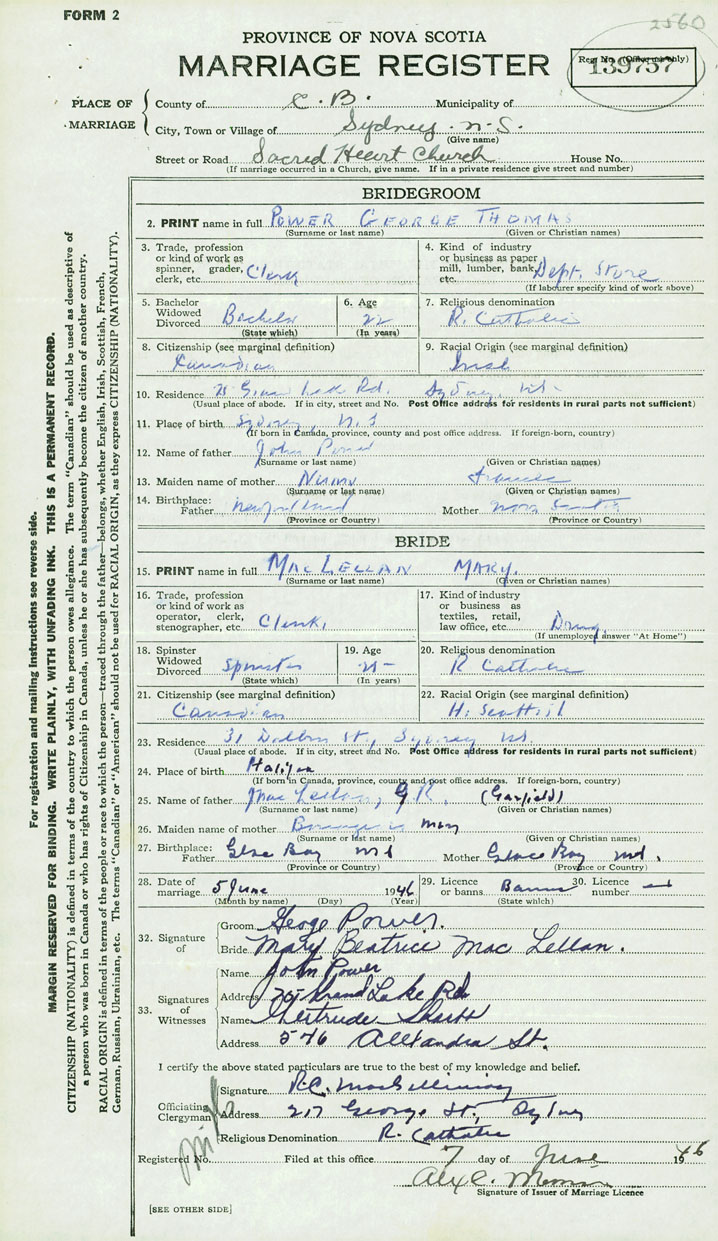 FORM 2
2560
PROVINCE OF NOVA SCOTIA
MARRIAGE REGISTER
Reg. No. (Office use only)
139757
PLACE OF MARRIAGE
County of C. B. Municipality of
City, Town or Village of Sydney N.S.
(Give name)
Street or Road Sacred Heart Church House No.
(If marriage occurred in a Church, give name. If in a private residence give street and number)
BRIDEGROOM
2. PRINT name in full POWER GEORGE THOMAS
(Surname or last name) (Given or Christian names)
3. Trade, profession or kind of work as spinner, grader, clerk, etc. Clerk
4. Kind of industry or business as paper mill, lumber, bank, etc. Dept. Store
(If labourer specify kind of work above)
5. Bachelor Widowed Divorced Bachelor
(State which)
6. Age 22
(In years)
7. Religious denomination
R. Catholic
8. Citizenship (see marginal definition)
Canadian
9. Racial Origin (see marginal definition)
Irish
10. Residence Lake Rd. Sydney, NS
(Usual place of abode. If in city, street and No. Post Office address for residents in rural parts not sufficient)
11. Place of birth Sydney, N.S
(If born in Canada, province, county and post office address. If foreign-born, country)
12. Name of father John Power
(Surname or last name) (Given or Christian names)
13. Maiden name of mother Frances
(Surname or last name) (Given or Christian names)
14. Birthplace: Father Newfoundland Mother Nova Scotia
(Province or Country) (Province or Country)
BRIDE
15. PRINT name in full MACLELLAN MARY,
(Surname or last name) (Given or Christian names)
16. Trade, profession or kind of work as operator, clerk, stenographer, etc. Clerk,
17. Kind of industry or business as textiles, retail, law office, etc. Drug,
(If unemployed answer "At Home")
18. Spinster Widowed Divorced Spinster
(State which)
19. Age
(In years)
20. Religious denomination
R Catholic
21. Citizenship (see marginal definition)
Canadian
22. Racial Origin (see marginal definition)
H. Scottish
23. Residence 31 St, Sydney NS.
(Usual place of abode. If in city, street and No. Post Office address for residents in rural parts not sufficient)
24. Place of birth Halifax
(If born in Canada, province, county and post office address. If foreign-born, country)
25. Name of father MacLellan, G R. (Garfield)
(Surname or last name) (Given or Christian names)
26. Maiden name of mother Mary
(Surname or last name) (Given or Christian names)
27. Birthplace: Father Glace Bay NS Mother Glace Bay NS.
(Province or Country) (Province or Country)
28. Date of marriage 5 June 1946
(Month by name) (Day) (Year)
29. Licence or banns Banns
(State which)
30. Licence number —
32. Signature of
Groom George Power.
Bride Mary Beatrice MacLellan.
33. Signatures of Witnesses
Name John Power
Address Grand Lake Rd
Name Gertrude
Address 546 Alexandra St.
I certify the above stated particulars are true to the best of my knowledge and belief.
Officiating Clergyman
Signature R.C.
Address 217 George St, Sydney
Religious Denomination R. Catholic
Registered No. Filed at this office 7 day of June 1946
Alex C.
Signature of Issuer of Marriage Licence
[SEE OTHER SIDE]
For registration and mailing instructions see reverse side.
MARGIN RESERVED FOR BINDING. WRITE PLAINLY, WITH UNFADING INK. THIS IS A PERMANENT RECORD.
CITIZENSHIP (NATIONALITY) is defined in terms of the country to which the person owes allegiance. The term "Canadian" should be used as descriptive of
a person who was born in Canada or who has rights of Citizenship in Canada, unless he or she has subsequently become the citizen of another country.
RACIAL ORIGIN is defined in terms of the people or race to which the person—traced through the father—belongs, whether English, Irish, Scottish, French,
German, Russian, Ukrainian, etc. The terms "Canadian" or "American" should not be used for RACIAL ORIGIN, as they express CITIZENSHIP (NATIONALITY).